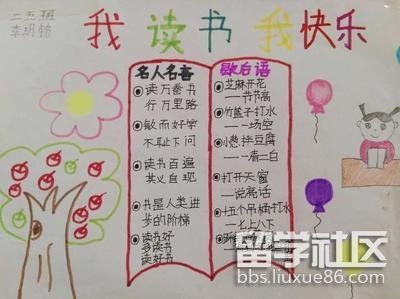 二五班
李玥铭
我读书 我快乐
名人名言
读万卷书
行万里路
敏而好学
不耻下问
读书百遍
其义自现
书是人类进
步的阶梯
读书好
多读书
读好书
歇后语
芝麻开花
一节节高
竹篮子打水
一场空
小葱拌豆腐
一清二白
打开天窗
一说亮话
十五个吊桶打水
一七上八下
留学社区
bbs.liuxue86.com